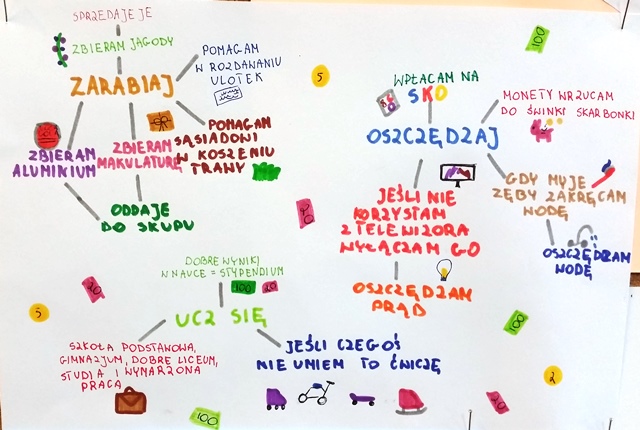 SPRZEDAJE JE
ZBIERAM JAGODY
ZARABIAJ
POMAGAM
W ROZDAWANIU
ULOTEK
ZBIERAM
ALUMINIUM
ZBIERAM
MAKULATURĘ
POMAGAM
SĄSIADOWI
W KOSZENIU
TRAWY
ODDAJE
DO SKUPU
5
100
WPŁACAM NA
SKO
OSZCZĘDZAJ
MONETY WRZUCAM
DO ŚWINKI SKARBONKI
JEŚLI NIE
KORZYSTAM
Z TELEWIZORA
WYŁĄCZAM GO
OSZCZĘDZAM
PRĄD
GDY MYJE
ZĘBY ZAKRĘCAM
WODĘ
OSZCZĘDZAM
WODĘ
DOBRE WYNIKI
W NAUCE = STYPENDIUM
100 20
UCZ SIĘ
SZKOŁA PODSTAWOWA,
GIMNAZJUM, DOBRE LICEUM,
STUDIA I WYMARZONA
PRACA
JEŚLI CZEGOŚ
NIE UMIEM TO ĆWICZĘ
20
5
100
100
20
2